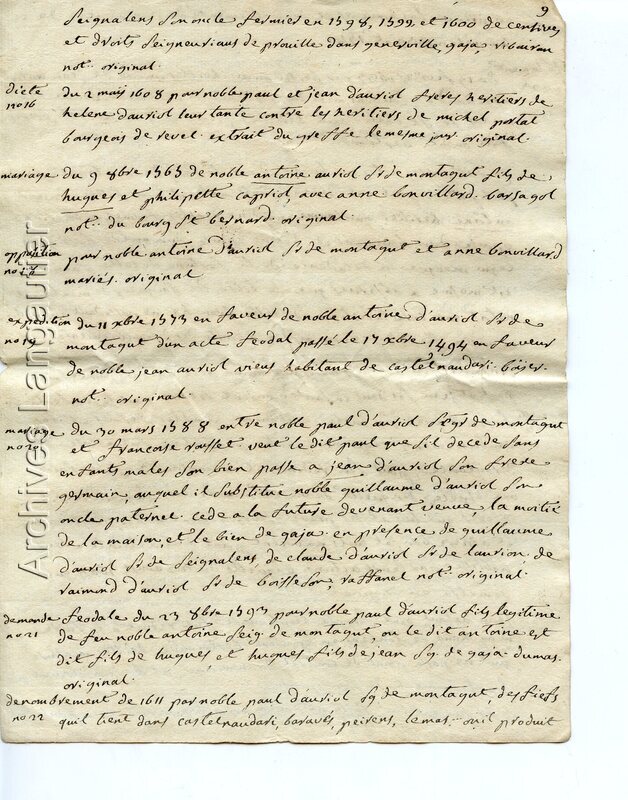 9
seignalens son oncle fermier en 1598, 1599, et 1600 de censives
et droits seigneuriaus de prouille dans generville, gaja, ribauran
not.. original.
dicte du 2 mais 1608 pour noble paul et jean d'auriol freres heritiers de
no 16 helene d'auriol leur tante contre les heritiers de michel portal
bourgeois de revel. extrait du greffe le mesme jour. original.
mariage du 9 8bre 1565 de noble antoine auriol sr de montagut fils de
hugues et philipette capriol, avec anne bonvillard. barsagol
not.. du bourg st bernard. original
opposition pour noble antoine d'auriol sr de montagut et anne bonvillard
no 18 mariés. original
expedition du 11 xbre 1573 en faveur de noble antoine d'auriol sr de
no 19 montagut d'un acte feodal passé le 17 xbre 1494 en faveur
de noble jean auriol vieus habitant de castelnaudari.
not.. original.
mariage du 30 mars 1588 entre noble paul d'auriol sgr de montagut
no 20 et francoise rousset. veut le dit paul que s'il decede sans
enfants males son bien passe a jean d'auriol son frere
germain, auquel il substitue noble guillaume d'auriol son
oncle paternel. cede a la future devenant veuve, la moitié
de la maison, et le bien de gaja. en presence de guillaume
d'auriol sr de seignalens, de claude d'auriol sr de laurion, de
raimond d'auriol sr de boisseson, raffanel not.. original.
demande feodale du 23 8bre 1593 pour noble paul d'auriol fils legitime
no 21 de feu noble antoine seig. de montagut, ou le dit antoine est
dit fils de hugues et hugues fils de jean sg. de gaja. dumas.
original.
denombrement de 1611 par noble paul d'auriol sg de montagut, des fiefs
no 22 qu'il tient dans castelnaudari, baravés, peirens, lemas.. ou il produit
Archives Langautier